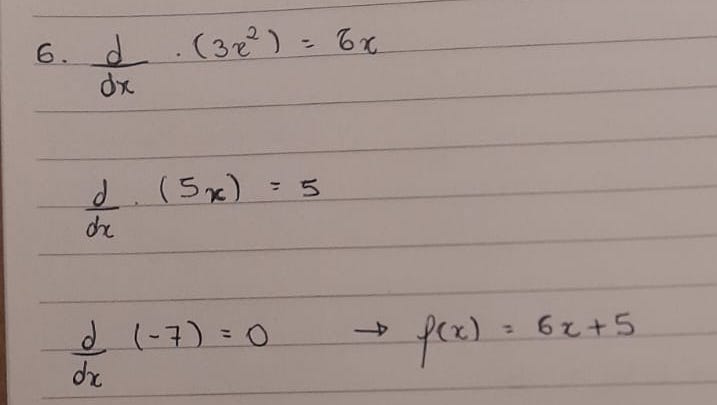 6. d/dx · (3x²) = 6x
d/dx · (5x) = 5
d/dx (-7) = 0 → f(x) = 6x + 5